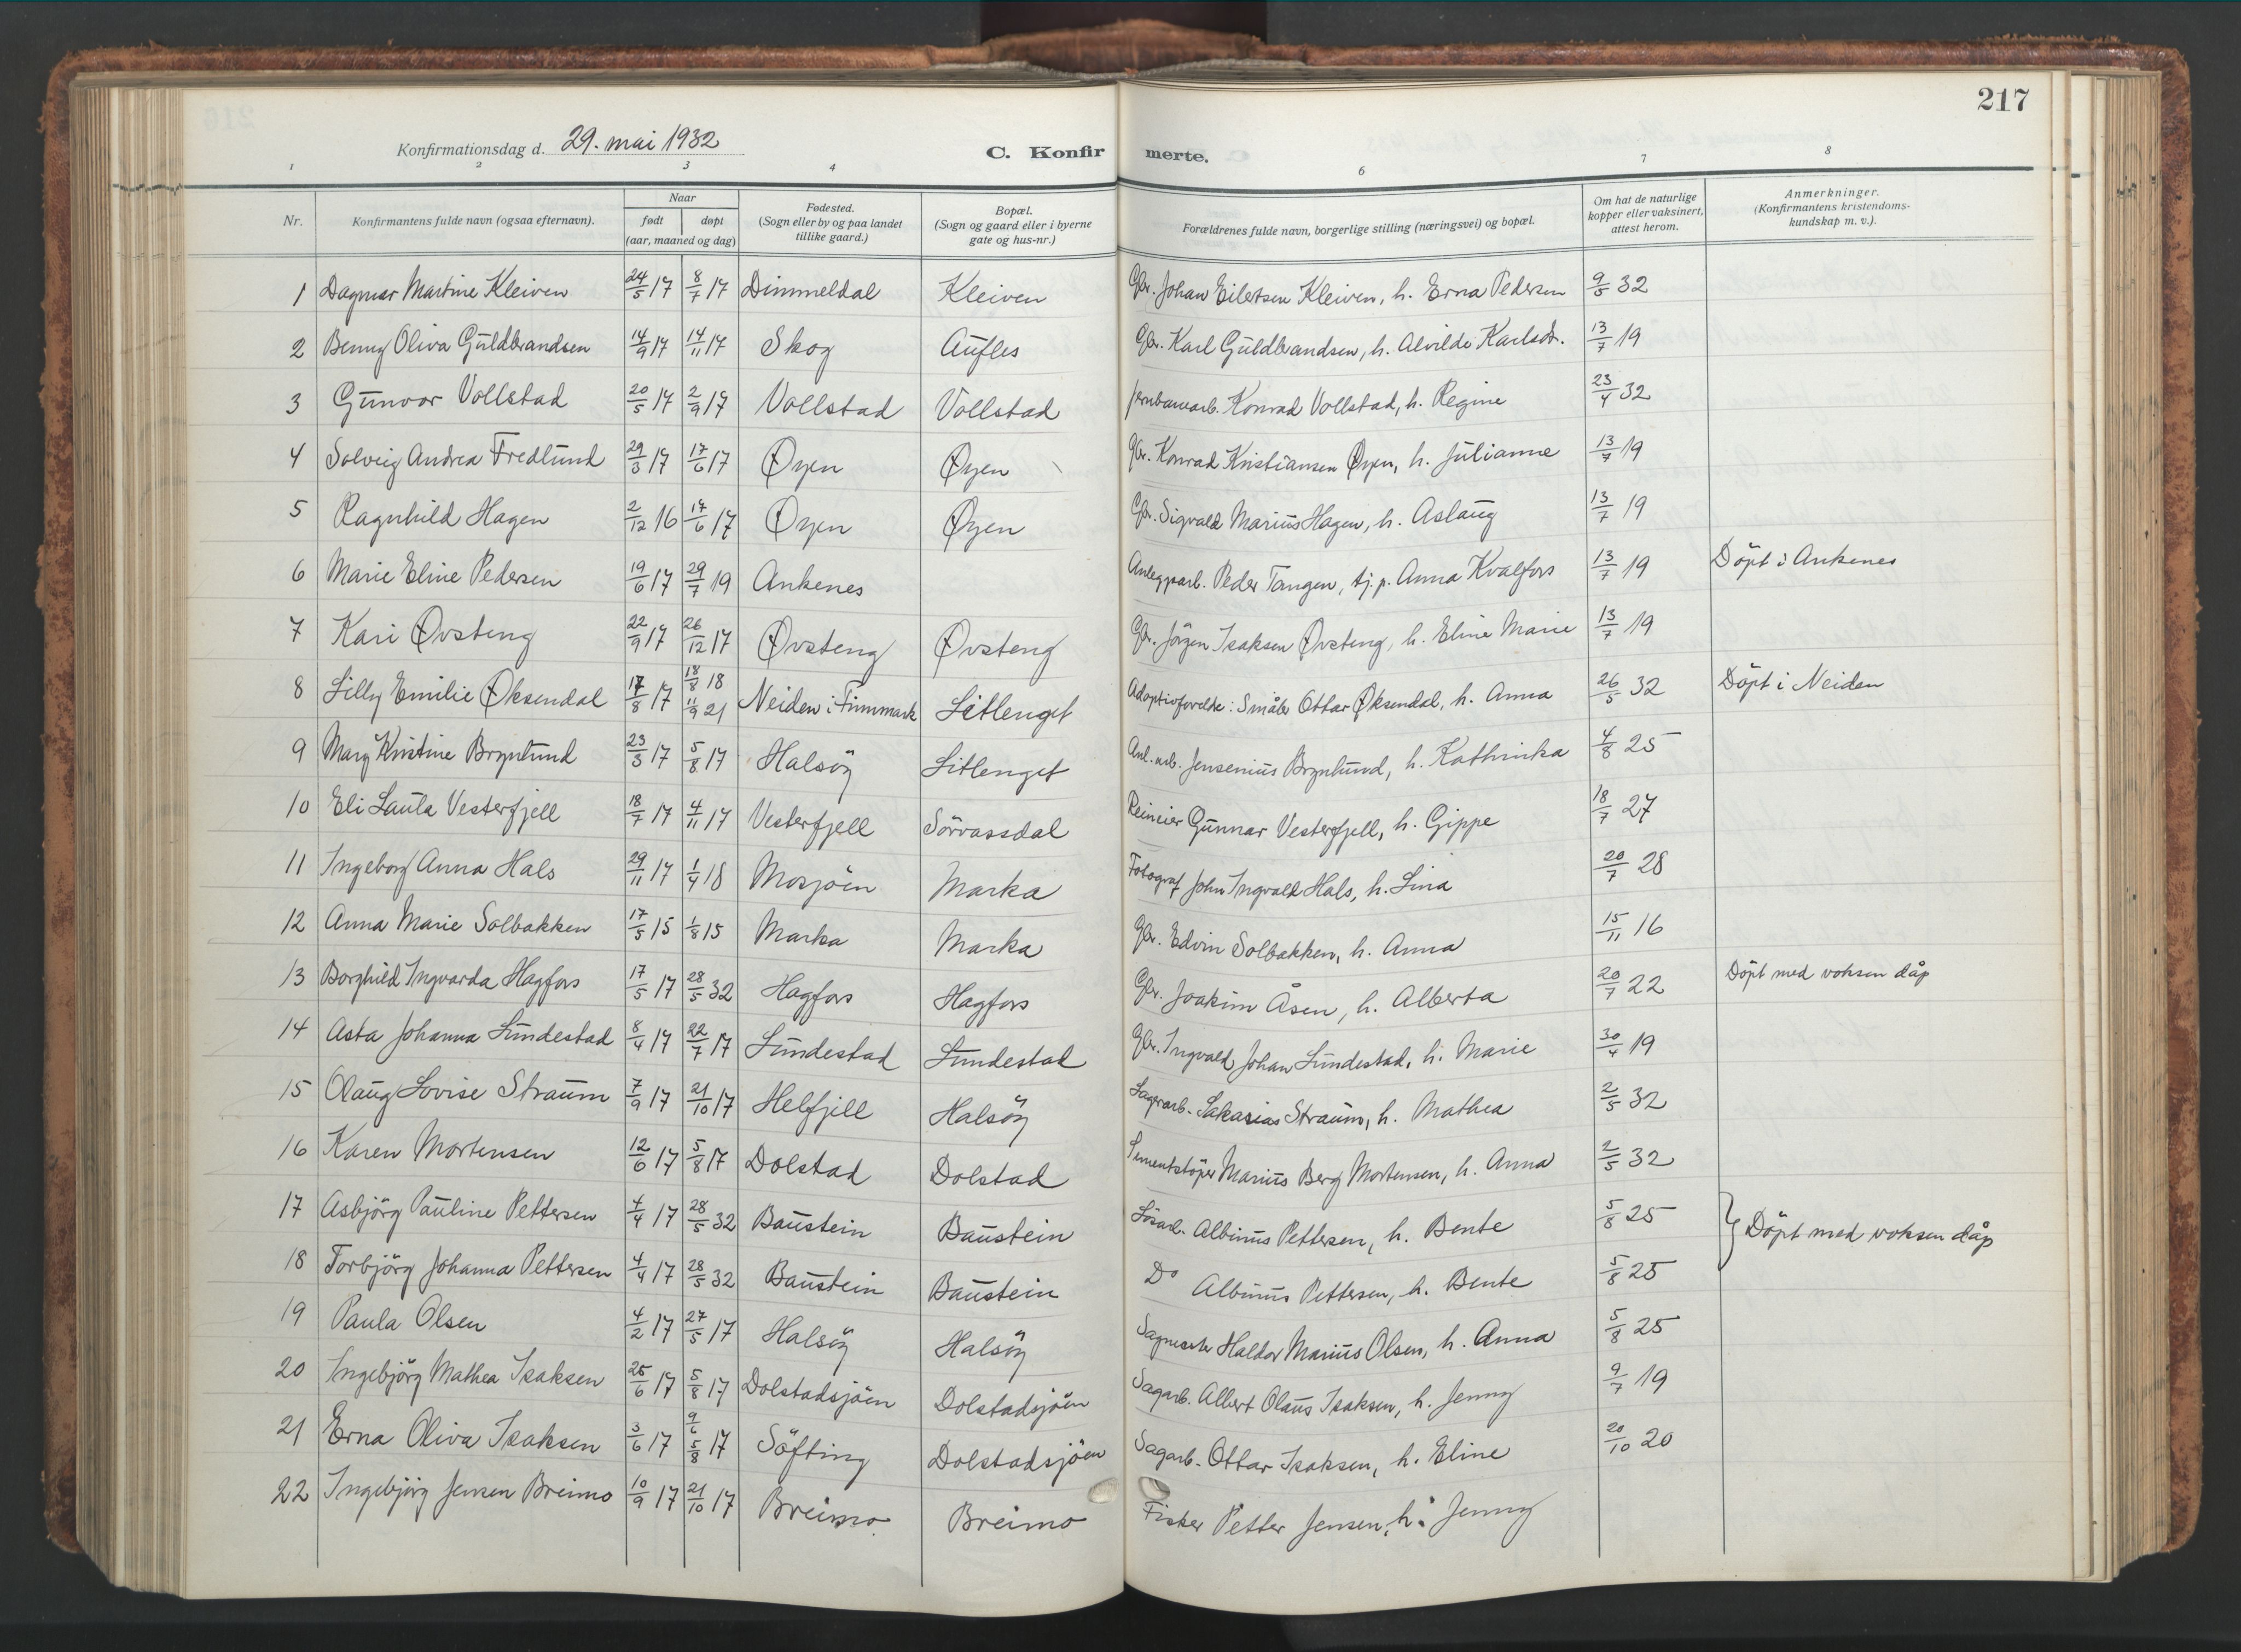 217
Konfirmationsdag d. 29. mai 1932
C. Konfirmerte.
1 2 3 4 6 7 8
Nr. | Konfirmantens fulde navn (ogsaa efternavn). | Naar født døpt (aar, maaned og dag) | Fødested. (Sogn eller by og paa landet tillike gaard.) | Bopæl. (Sogn og gaard eller i byerne gate og hus-nr.) | Forældrenes fulde navn, borgerlige stilling (næringsvei) og bopæl. | Om hat de naturlige kopper eller vaksinert, attest herom. | Anmerkninger. (Konfirmantens kristendomskundskap m. v.).
1 Dagmar Martine Kleiven 24/5 17 8/7 17 Dimmeldal Kleiven Gbr. Johan Eilertsen Kleiven, h. Erna Pedersen 9/5 32
2 Benny Oliva Guldbrandsen 14/9 17 14/11 17 Skog Aufles Gbr. Karl Guldbrandsen, h. Alvilde Karlsdr. 13/7 19
3 Gunvor Vollstad 20/5 17 2/9 17 Vollstad Vollstad Jernbanearb. Konrad Vollstad, h. Regine 23/4 32
4 Solveig Andrea Fredlund 29/3 17 17/6 17 Øyen Øyen Gbr. Konrad Kristiansen Øyen, h. Julianne 13/7 19
5 Ragnhild Hagen 2/12 16 17/6 17 Øyen Øyen Gbr. Sigvald Marius Hagen, h. Aslaug 13/7 19
6 Marie Eline Pedersen 19/6 17 29/7 19 Ankenes Anleggsarb. Peder Tangen, tj.p. Anna Kvalfors 13/7 19 Döpt i Ankenes
7 Kari Øvsteng 22/9 17 26/12 17 Øvsteng Øvsteng Gbr. Jörgen Isaksen Øvsteng, h. Eline Marie 13/7 19
8 Lilly Emilie Øksendal 17/8 17 18/8 18 11/9 21 Neiden i Finnmark Litlenget Adoptivforeldre: Småbr. Ottar Øksendal, h. Anna 26/5 32 Döpt i Neiden
9 Mary Kristine Brynlund 23/3 17 5/8 17 Halsöy Litlenget Anl.arb. Jensenius Brynlund, h. Kathinka 4/8 25
10 Eli Laula Vesterfjell 18/7 17 4/11 17 Vesterfjell Sörvassdal Reineier Gunnar Vesterfjell, h. Gippe 18/7 27
11 Ingeborg Anna Hals 29/11 17 1/4 18 Mosjöen Marka Fotograf John Ingvald Hals, h. Lina 20/7 28
12 Anna Marie Solbakken 17/5 15 1/8 15 Marka Marka Gbr. Edvin Solbakken, h. Anna 15/11 16
13 Borghild Ingvarda Hagfors 17/5 17 28/5 32 Hagfors Hagfors Gbr. Joakim Åsen, h. Alberta 20/7 22 Döpt med voksen dåp
14 Asta Johanna Lundestad 8/4 17 22/7 17 Lundestad Lundestad Gbr. Ingvald Johan Lundestad, h. Marie 30/4 19
15 Olaug Lovise Straum 7/9 17 21/10 17 Helfjell Halsöy Lagerarb. Sakarias Straum, h. Mathea 2/5 32
16 Karen Mortensen 12/6 17 5/8 17 Dolstad Dolstad Sementstöper Marius Berg Mortensen, h. Anna 2/5 32
17 Asbjörg Pauline Pettersen 4/4 17 28/5 32 Baustein Baustein Lösarb. Albinus Pettersen, h. Bente 5/8 25 } Döpt med voksen dåp
18 Torbjörg Johanna Pettersen 4/4 17 28/5 32 Baustein Baustein Do Albinus Pettersen, h. Bente 5/8 25
19 Paula Olsen 4/2 17 27/5 17 Halsöy Halsöy Sagmester Haldor Marius Olsen, h. Anna 5/8 25
20 Ingebjörg Mathea Isaksen 25/6 17 5/8 17 Dolstadsjöen Dolstadsjöen Sagarb. Albert Olaus Isaksen, h. Jenny 9/7 19
21 Erna Oliva Isaksen 3/6 17 9/6 5/8 17 Söfting Dolstadsjöen Sagarb. Ottar Isaksen, h. Eline 20/10 20
22 Ingebjörg Jensen Breimo 10/9 17 21/10 17 Breimo Breimo Fisker Petter Jensen, h. Jenny